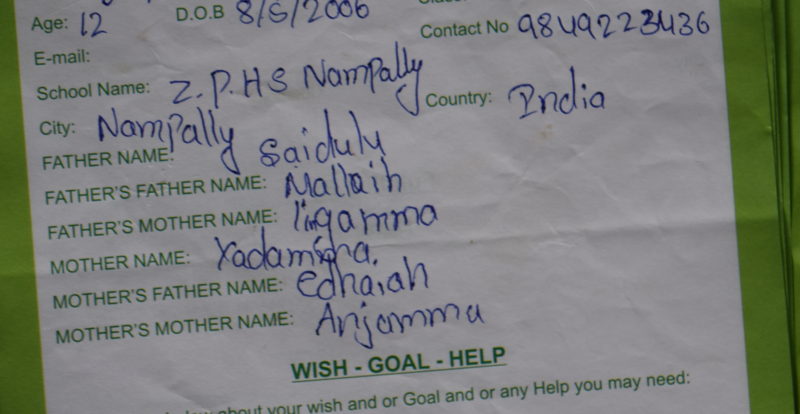 Age: 12 D.O.B 8/6/2006
Contact No 9849223436
E-mail:
School Name: Z.P.H.S Nampally
City: Nampally Country: India
FATHER NAME: Saidulu
FATHER'S FATHER NAME: Mallaih
FATHER'S MOTHER NAME: lingamma
MOTHER NAME:
MOTHER'S FATHER NAME: edhaiah
MOTHER'S MOTHER NAME: Anjamma
WISH - GOAL - HELP
about your wish and or Goal and or any Help you may need: